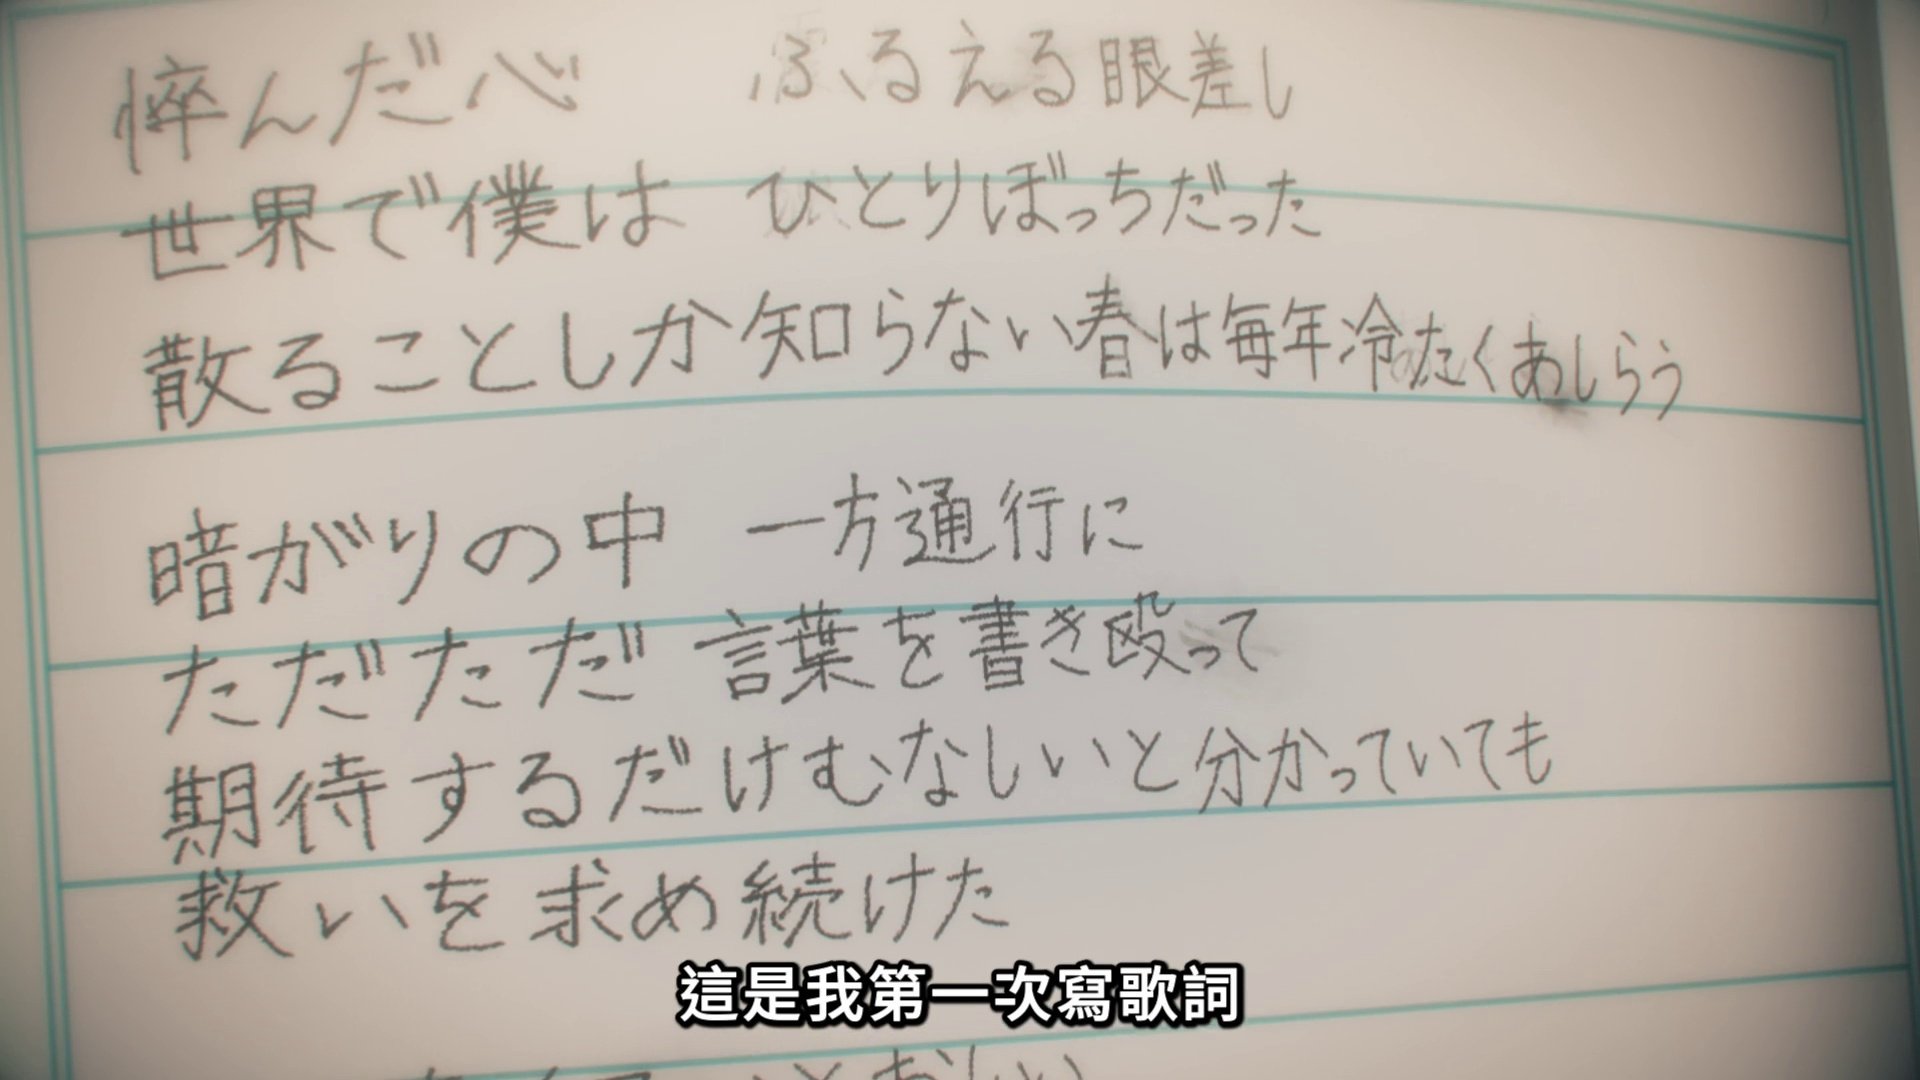 悴んだ心　ふるえる眼差し
世界で僕は　ひとりぼっちだった
散ることしか知らない春は毎年冷たくあしらう
暗がりの中　一方通行に
ただただ　言葉を書き殴って
期待するだけむなしいと分かっていても
救いを求め続けた
這是我第一次寫歌詞